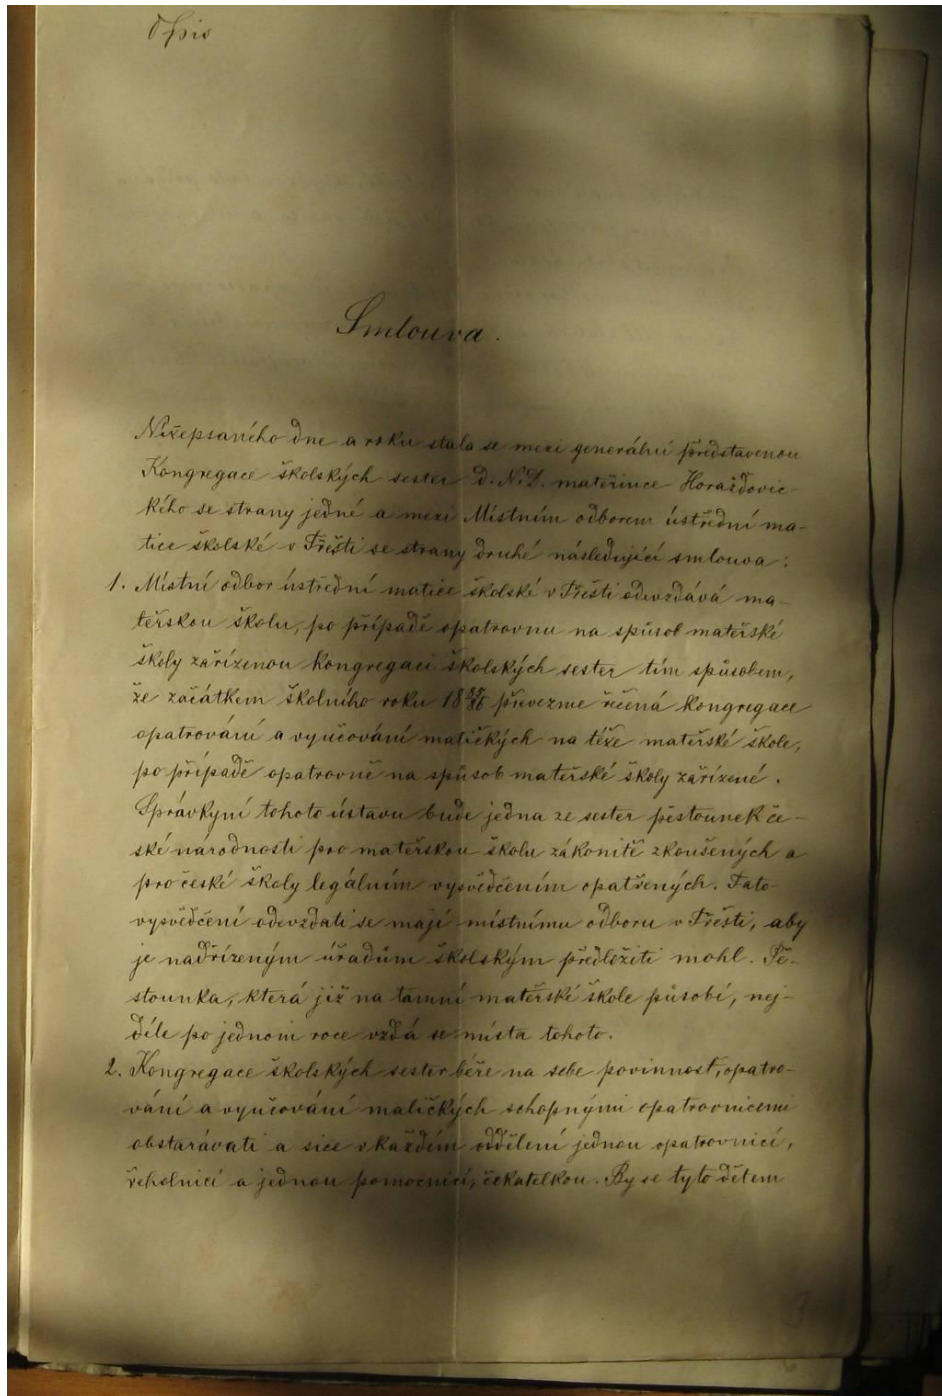 Opis
Smlouva.
Nížepsaného dne a roku stala se mezi generální představenou
Kongregace školských sester D. N. D. mateřince Horažďovic-
kého se strany jedné a mezi Místním odborem ústřední ma-
tice školské v Třešti se strany druhé následující smlouva:
1. Místní odbor ústřední matice školské v Třešti odevzdává ma-
teřskou školu, po případě opatrovnu na spůsob mateřské
školy zařízenou kongregaci školských sester tím spůsobem,
že začátkem školního roku 18 převezme řečená kongregace
opatrování a vyučování maličkých na téže mateřské škole,
po případě opatrovně na spůsob mateřské školy zařízené.
Správkyní tohoto ústavu bude jedna ze sester pěstounek če-
ské národnosti pro mateřskou školu zákonitě zkoušených a
pro české školy legálním vysvědčením opatřených. Tato
vysvědčení odevzdati se mají místnímu odboru v Třešti, aby
je nadřízeným úřadům školským předložiti mohl. Pě-
stounka, která již na tamní mateřské škole působí, nej-
déle po jednom roce vzdá se místa tohoto.
2. Kongregace školských sester béře na sebe povinnost, opatro-
vání a vyučování maličkých schopnými opatrovnicemi
obstarávati a sice v každém oddělení jednou opatrovnicí,
řeholnicí a jednou pomocnicí, čekatelkou. By se tyto dětem